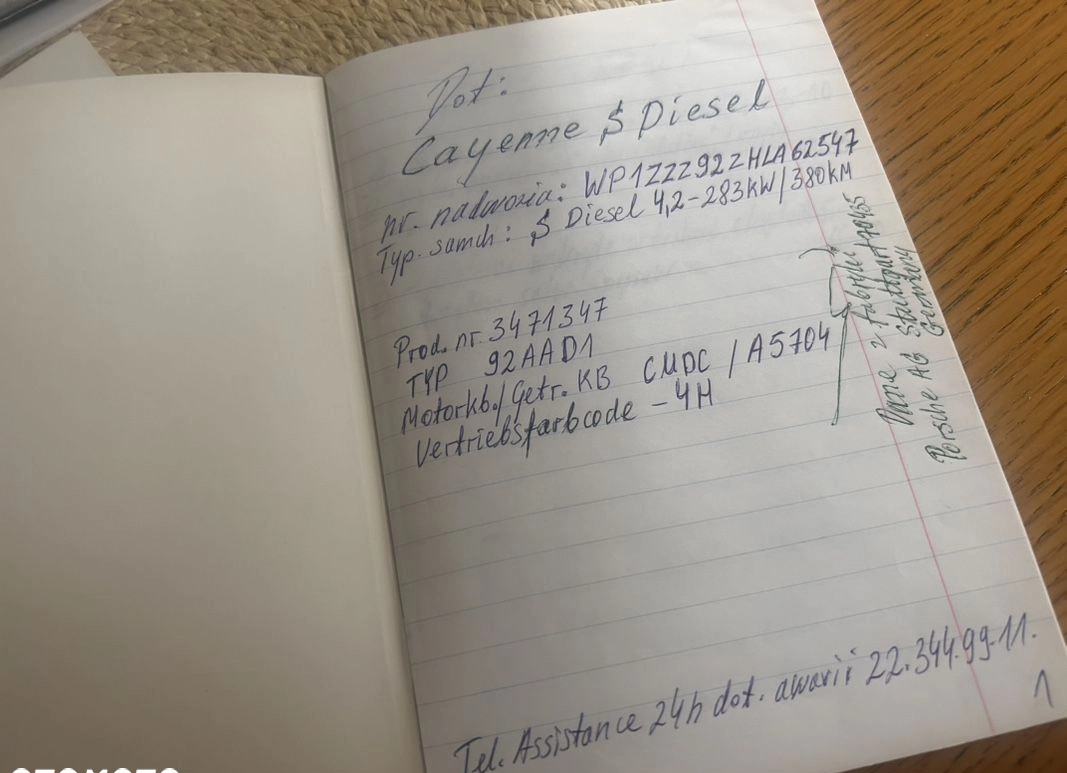 Dot:
Cayenne S Diesel
nr. nadwozia: WP1ZZZ92ZHLA62547
Typ. samch: S Diesel 4,2-283kW/380kM
Prod. nr. 3471347
TYP 92AAD1
Motorkb./Getr. KB CUDC / A5704
Vertriebsfarbcode - 4H
Dane z fabryki
Porsche AG Stuttgart 70435
Germany
Tel. Assistance 24h dot. awarii 22.344.99.11.
1